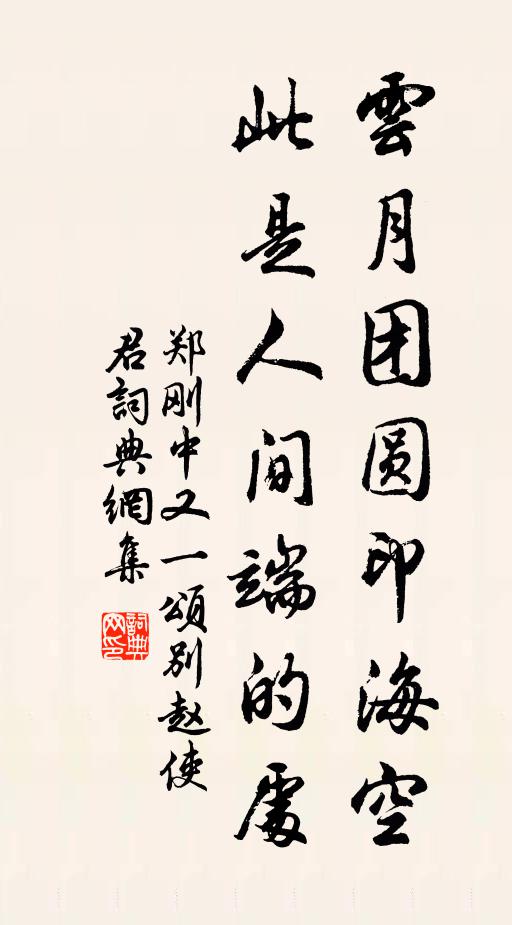 雲月团圆印海空
此是人间端的處
郑刚中又一頌别赵使
君詞典網集
詞典网印